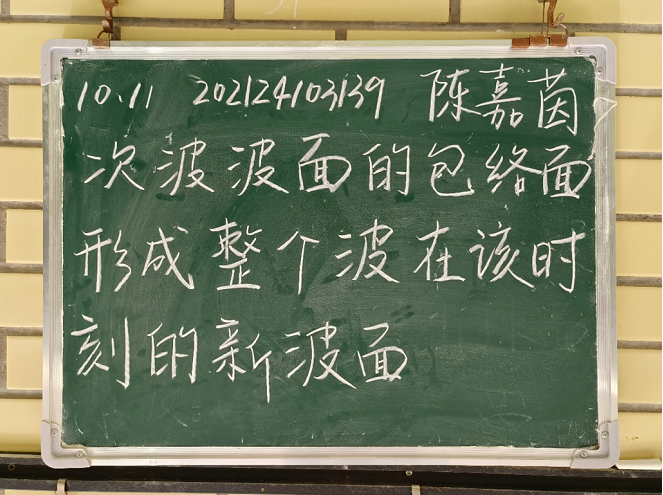 10.11 202124103139 陈嘉茵
次波波面的包络面
形成整个波在该时
刻的新波面